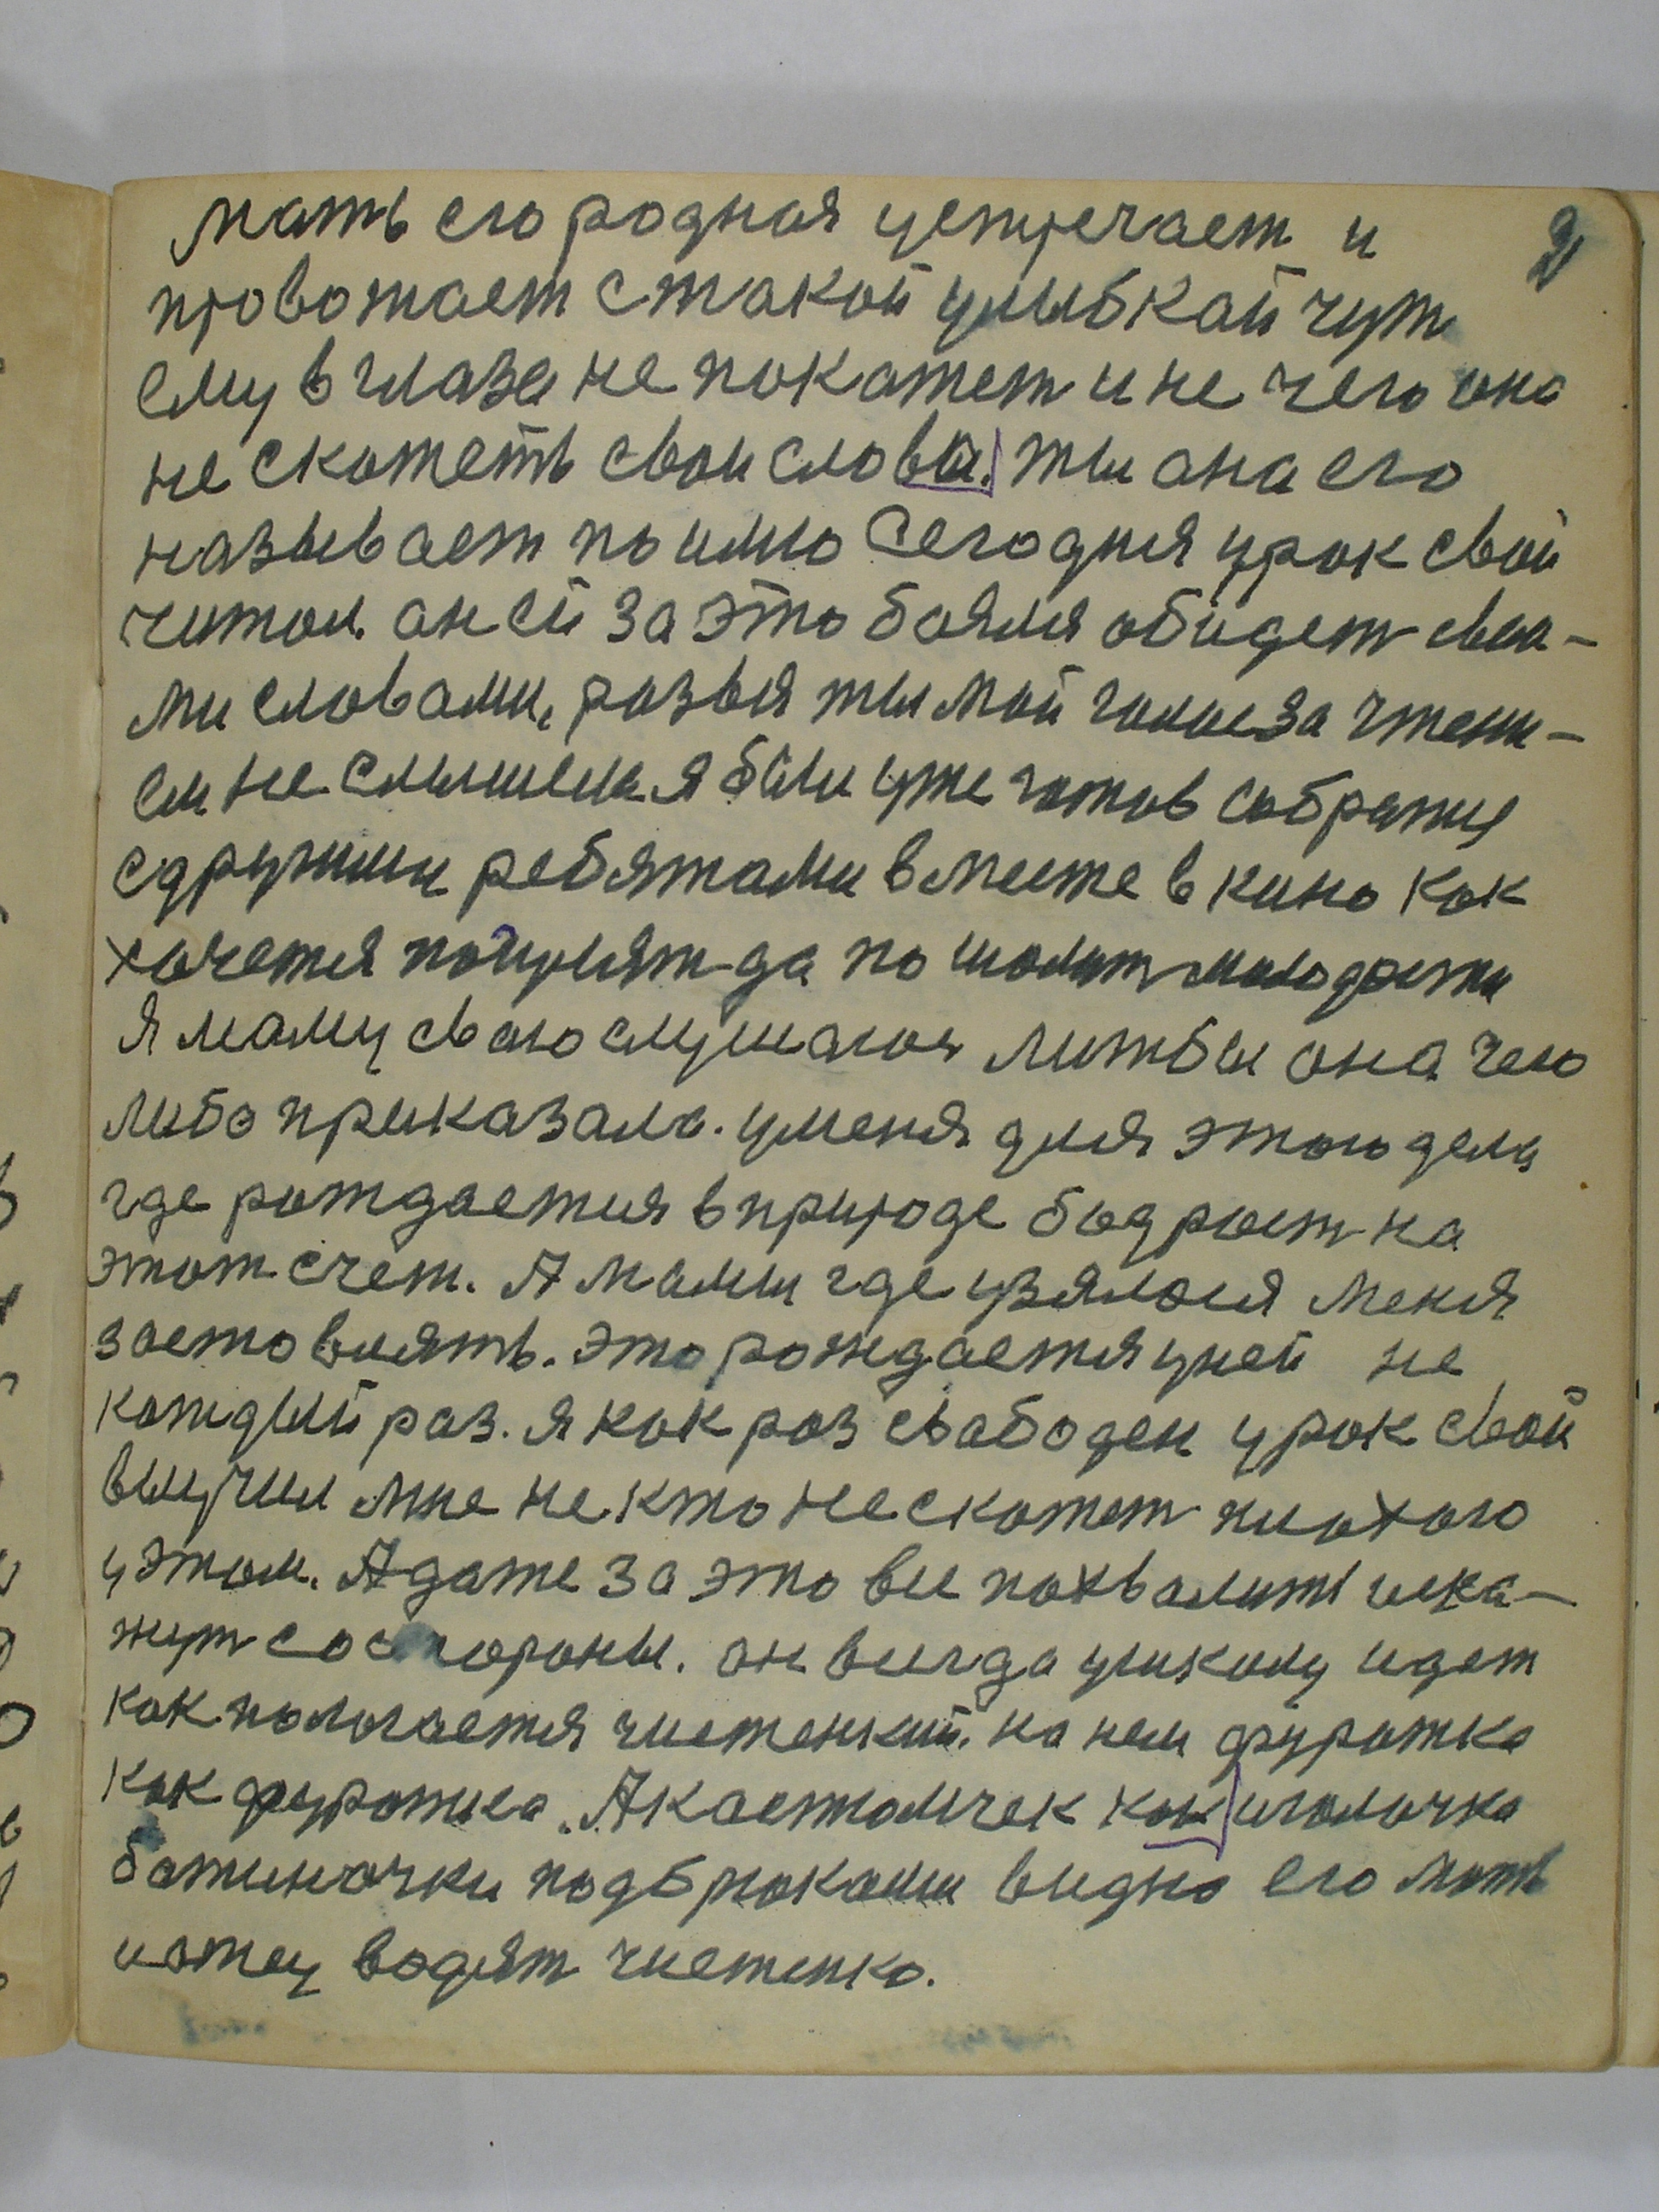 2
мать его родная устречает и
провожает с такой улыбкай чут
ему в глаза не покажет и не чего она
не скожеть свои слова. ты она его
называет по имю Сегодня урок свой
читал. ан ей за это баялся обидет сваи-
ми словами, развия ты мой голос за чтени-
ем не слышеш я был уже готов собратся
с другими ребятами вместе в кино как
хочется погулят да по шолит молодости
Я маму сваю слушался лиж бы она чего
либо приказала. у меня для этого дела
где рождается в природе бодрост на
этот счет. А мами где узялося меня
застовлять. это рождается у ней не
каждый раз. я как раз свабоден урок свой
выучил мне не кто не скожет плохого
у этом. А даже за это все похвалить и ска-
жут со стороны. он всегда у школу идет
как пологается чистенкий. на нем фуражка
как фуражка. А кастюмчек как иголочка
ботиночки под брюками видно его мать
и отец водят чистенко.